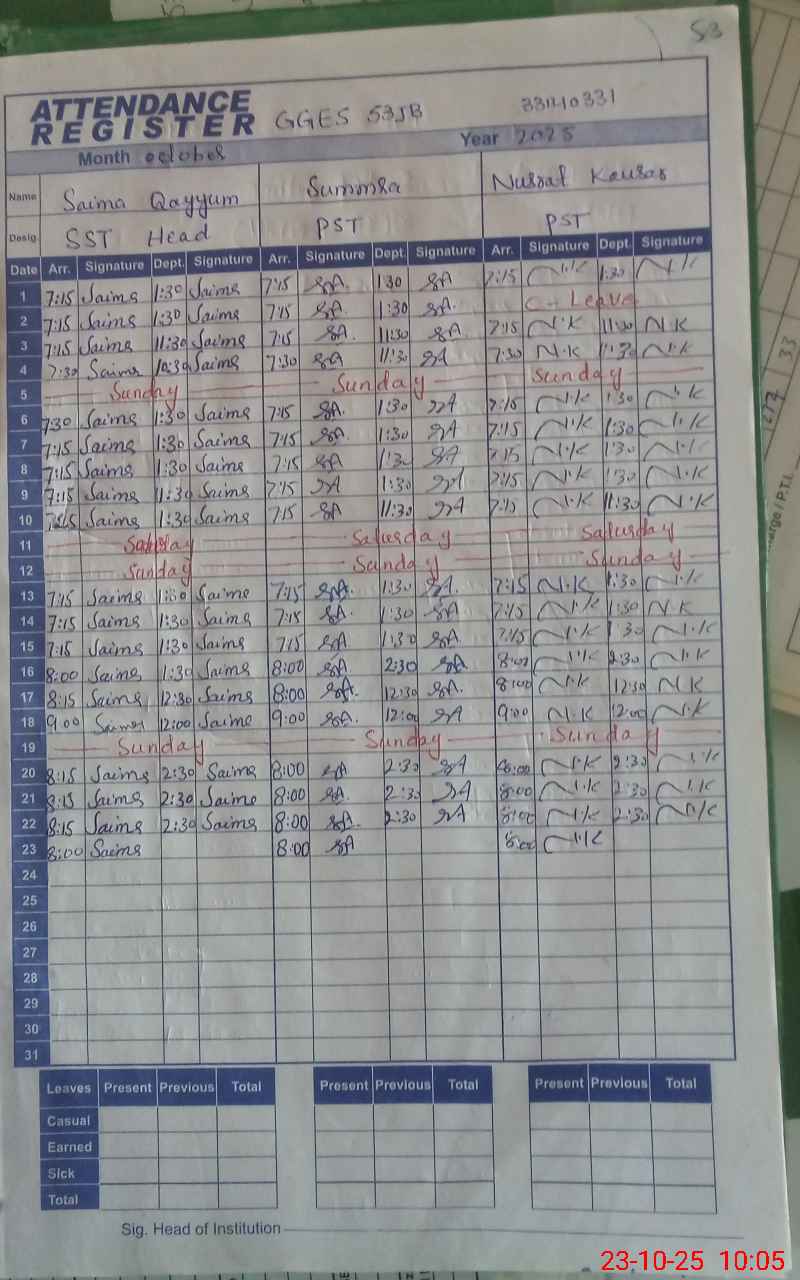 53
ATTENDANCE
REGISTER GGES 53JB 33140331
Month october Year 2025
Name Saima Qayyum Summra Nusrat Kausar
Desig. SST Head PST PST
Date Arr. Signature Dept. Signature Arr. Signature Dept. Signature Arr. Signature Dept. Signature
1 7:15 Saima 1:30 Saima 7:15 SA. 1:30 SA 7:15 N.K 1:30 N.K
2 7:15 Saima 1:30 Saima 7:15 SA. 1:30 SA. C-Leave
3 7:15 Saima 11:30 Saima 7:15 SA. 11:30 SA. 7:15 N.K 11:30 N.K
4 7:30 Saima 10:30 Saima 7:30 SA 11:30 SA 7:30 N.K 1:30 N.K
5 Sunday Sunday Sunday
6 7:30 Saima 1:30 Saima 7:15 SA. 1:30 SA 7:15 N.K 1:30 N.K
7 7:15 Saima 1:30 Saima 7:15 SA. 1:30 SA 7:15 N.K 1:30 N.K
8 7:15 Saima 1:30 Saima 7:15 SA 1:30 SA 7:15 N.K 1:30 N.K
9 7:15 Saima 11:30 Saima 7:15 SA 1:30 SA 7:15 N.K 1:30 N.K
10 Saima 1:30 Saima 7:15 SA 11:30 SA 7:15 N.K 11:30 N.K
11 Saturday Saturday Saturday
12 Sunday Sunday Sunday
13 7:15 Saima 1:30 Saima 7:15 SA. 1:30 SA. 7:15 N.K 1:30 N.K
14 7:15 Saima 1:30 Saima 7:15 SA. 1:30 SA 7:15 N.K 1:30 N.K
15 7:15 Saima 1:30 Saima 7:15 SA 1:30 SA. 7:15 N.K 1:30 N.K
16 8:00 Saima 1:30 Saima 8:00 SA. 2:30 SA 8:00 N.K 2:30 N.K
17 8:15 Saima 12:30 Saima 8:00 SA. 12:30 SA. 8:00 N.K 12:30 N.K
18 9:00 Saima 12:00 Saima 9:00 SA. 12:00 SA 9:00 N.K 12:00 N.K
19 Sunday Sunday Sunday
20 8:15 Saima 2:30 Saima 8:00 SA 2:30 SA 8:00 N.K 2:30 N.K
21 8:15 Saima 2:30 Saima 8:00 SA. 2:30 SA 8:00 N.K 2:30 N.K
22 8:15 Saima 2:30 Saima 8:00 SA. 2:30 SA 8:00 N.K 2:30 N.K
23 8:00 Saima 8:00 SA 8:00 N.K
24
25
26
27
28
29
30
31
Leaves Present Previous Total Present Previous Total Present Previous Total
Casual
Earned
Sick
Total
Sig. Head of Institution
23-10-25 10:05